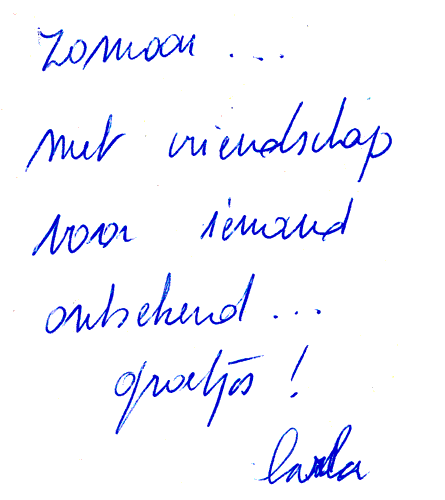 zomaar ...
met vriendschap
voor iemand
onbekend ...
groetjes !
Carla